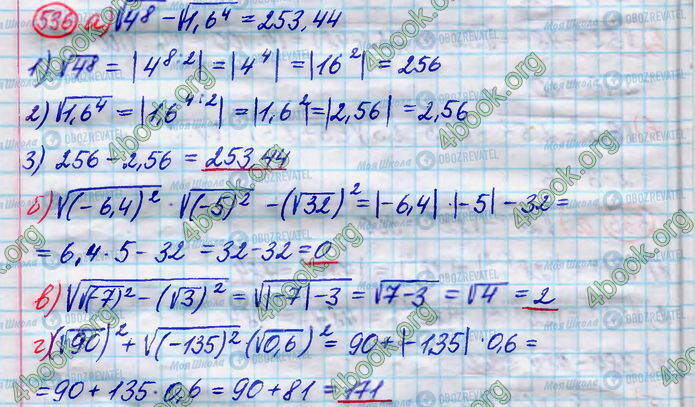 536 а) √4⁸ - √1,6⁴ = 253,44
1) √4⁸ = |4^(8:2)| = |4⁴| = |16²| = 256
2) √1,6⁴ = |1,6^(4:2)| = |1,6²| = |2,56| = 2,56
3) 256 - 2,56 = 253,44
б) √(-6,4)² · √(-5)² - (√32)² = |-6,4| · |-5| - 32 =
= 6,4 · 5 - 32 = 32 - 32 = 0
в) √(√(-7)² - (√3)²) = √(|-7| - 3) = √(7-3) = √4 = 2
г) (√90)² + √(-135)² · (√0,6)² = 90 + |-135| · 0,6 =
= 90 + 135 · 0,6 = 90 + 81 = 171
4book.org
Моя Школа
OBOZREVATEL